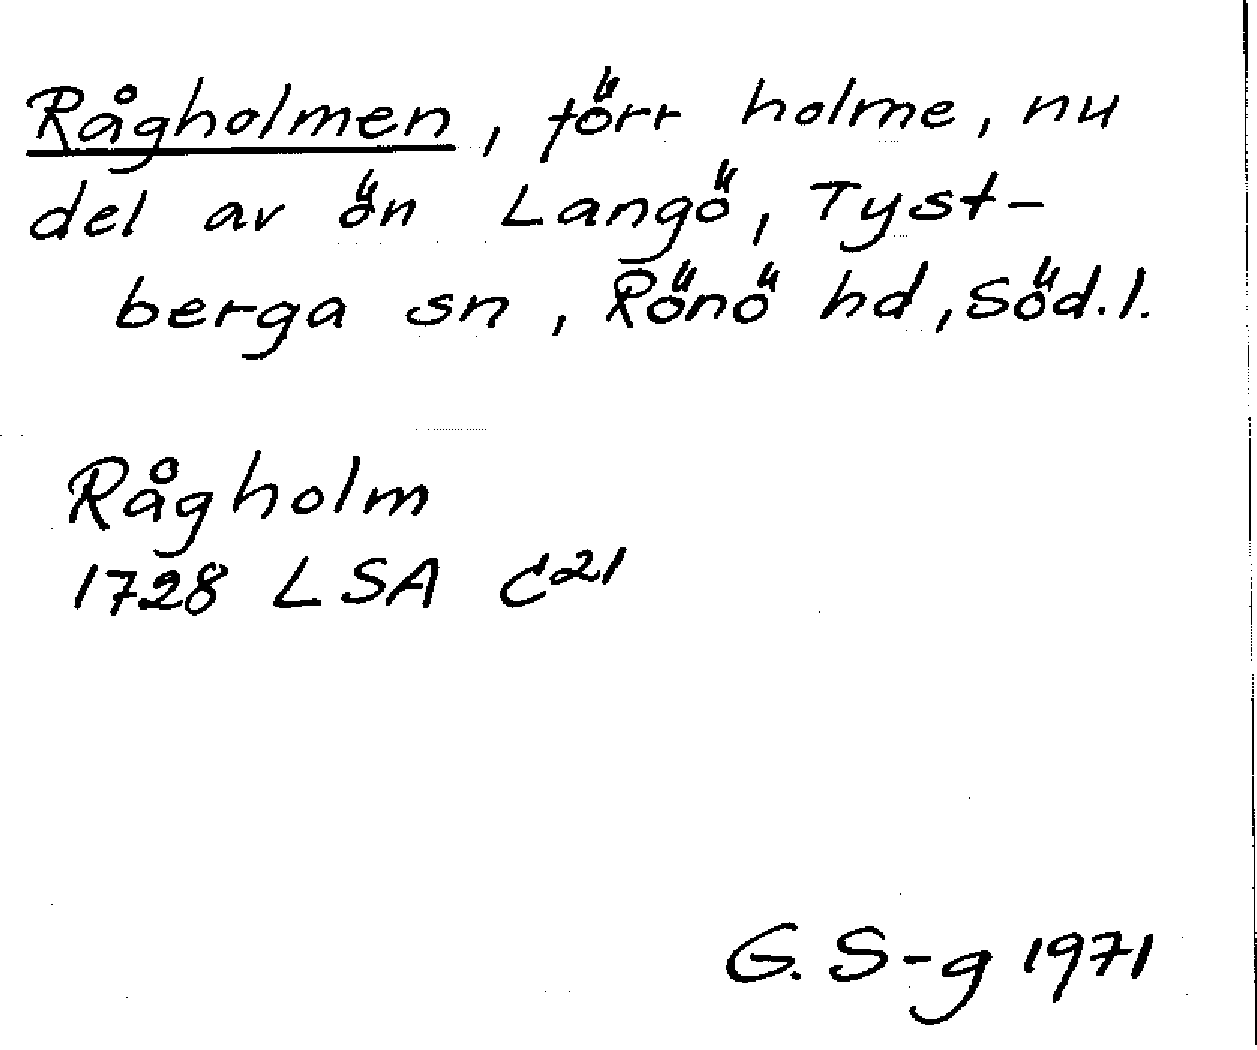 Rågholmen, förr holme, nu
del av ön Langö, Tyst-
berga sn, Rönö hd, Söd.l.
Rågholm
1728 LSA C21
G. S-g 1971